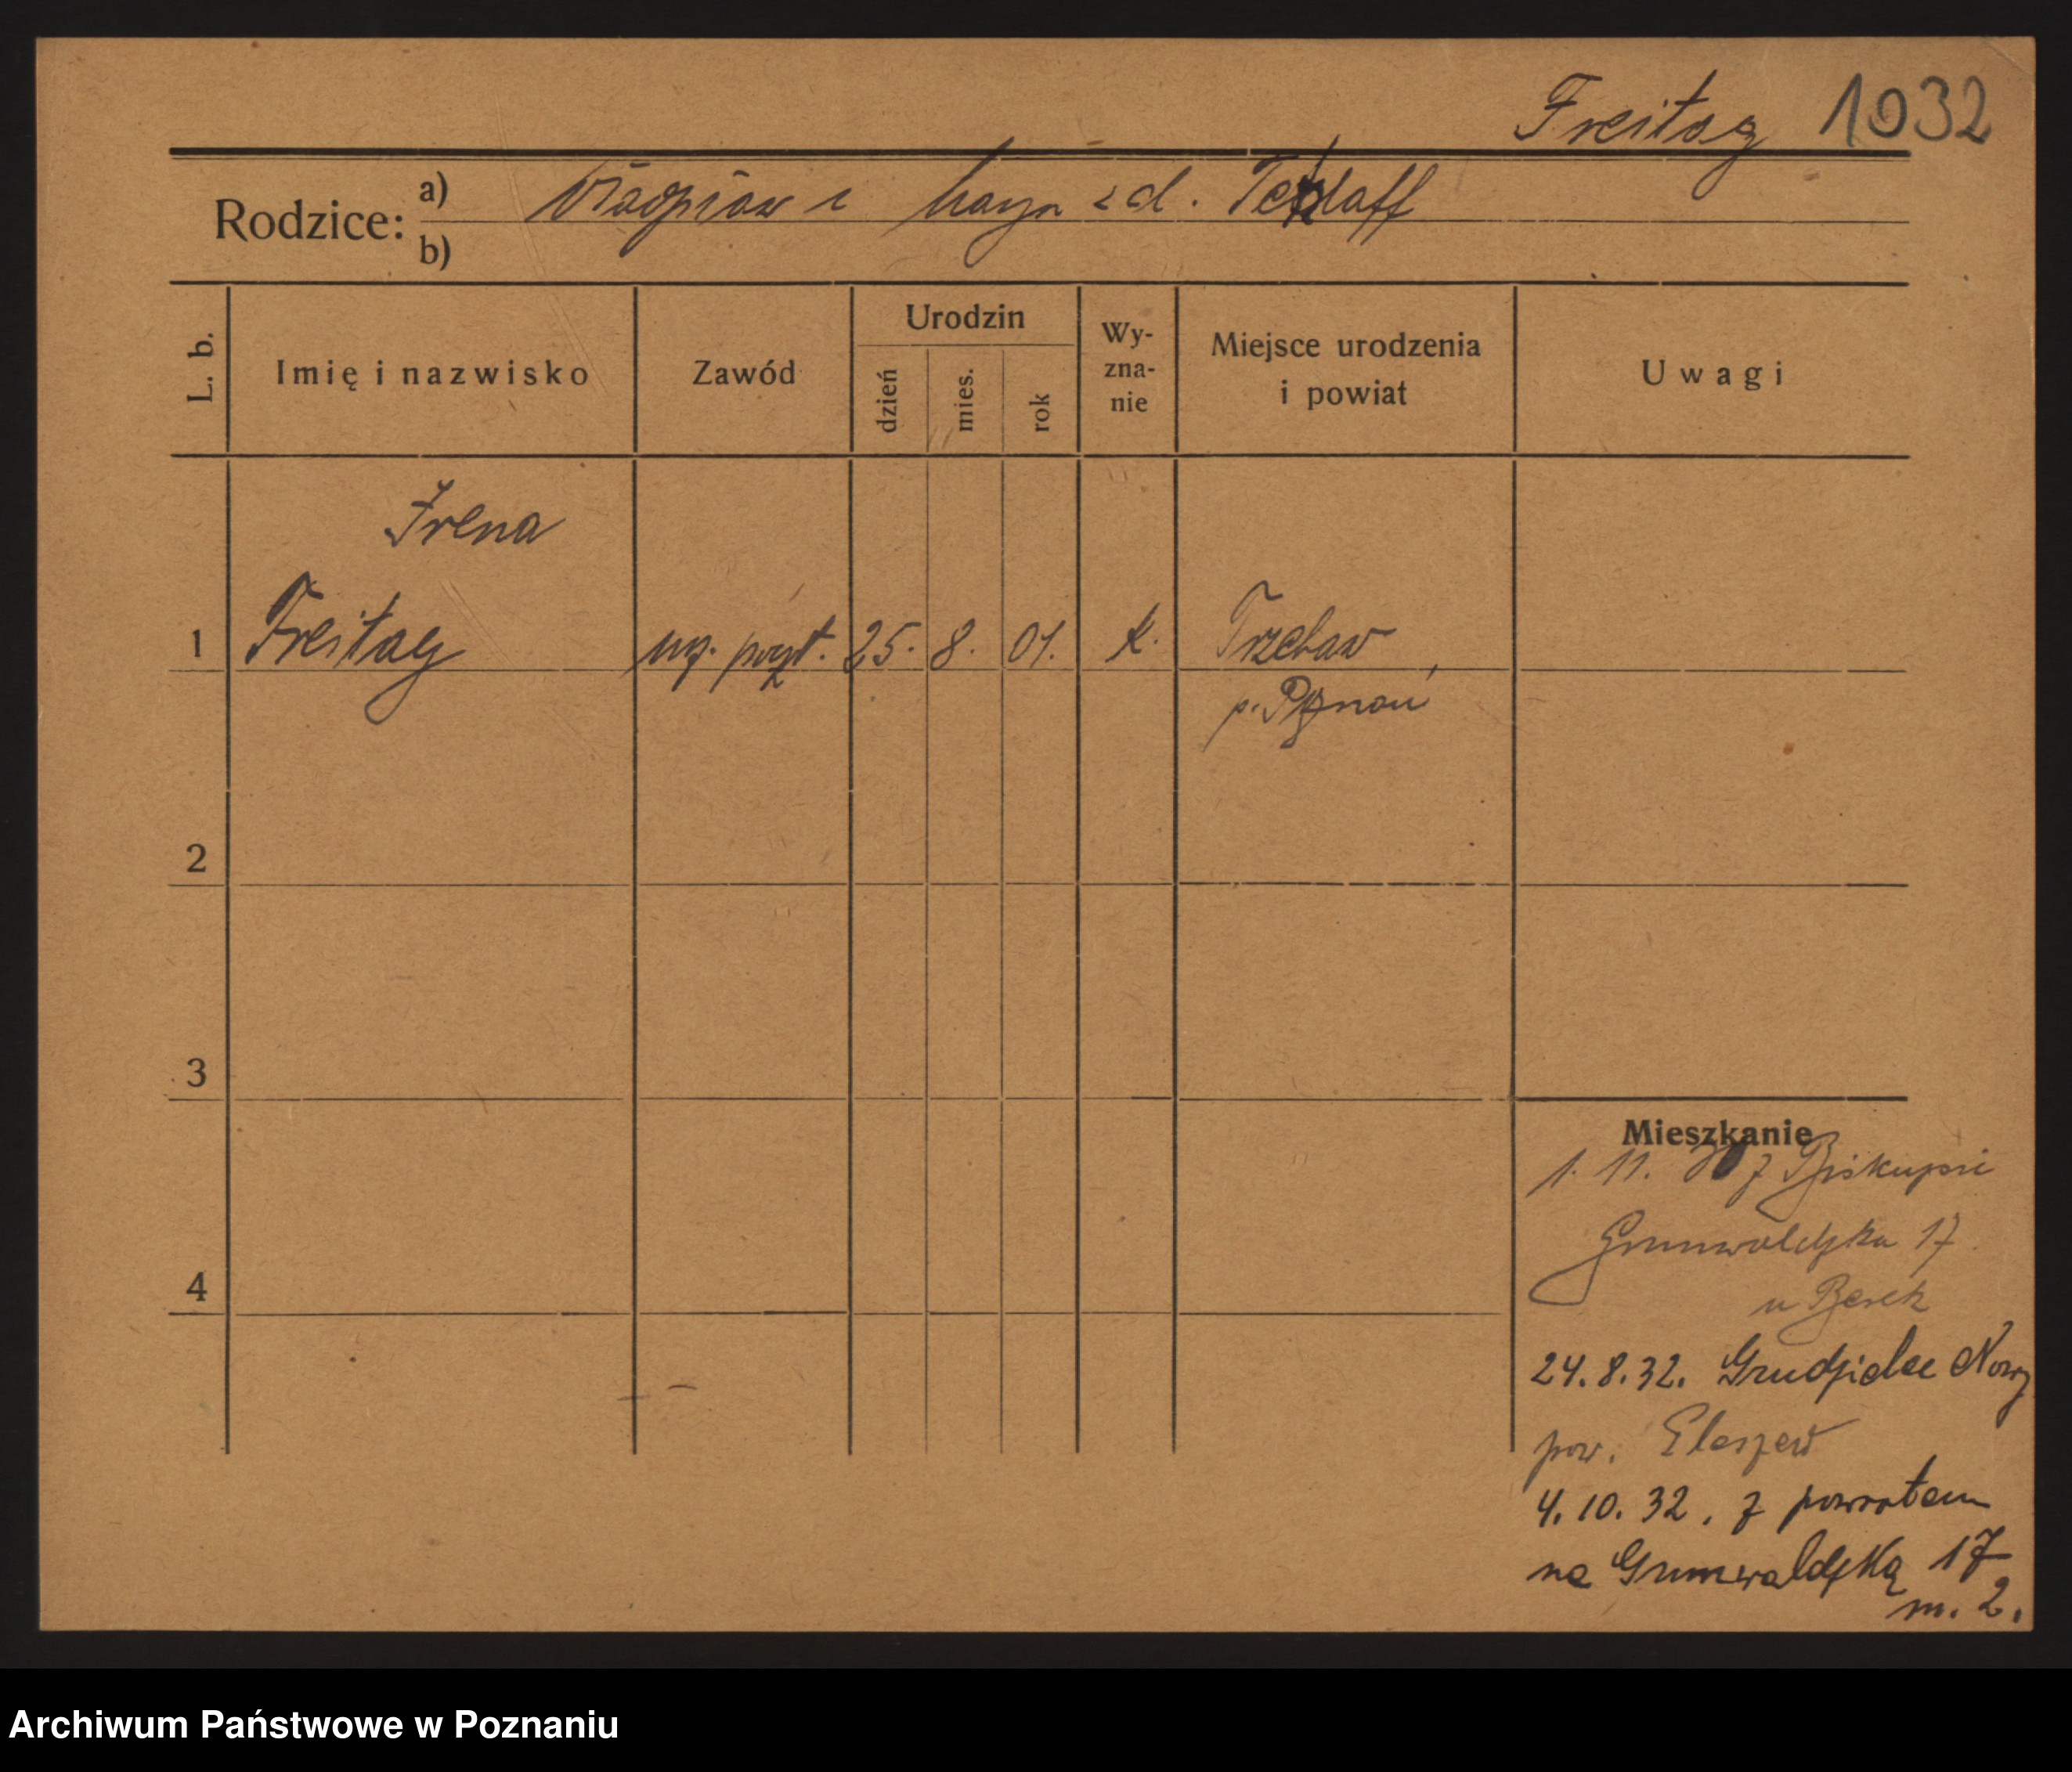 Freitag 1032
Rodzice: a) i zd. Tetzlaff
b)
L. b.
Imię i nazwisko
Zawód
Urodzin
dzień
mies.
rok
Wy-
zna-
nie
Miejsce urodzenia
i powiat
Uwagi
Irena
1 Freitag urz. poczt. 25. 8. 01. k. Trzebaw
p. Poznań
2
3
4
Mieszkanie
1. 11. z
Grunwaldzka 17
u
24.8.32. Grudzielec Nowy
pow.
4.10.32. z powrotem
na Grunwaldzką 17
m. 2.
Archiwum Państwowe w Poznaniu